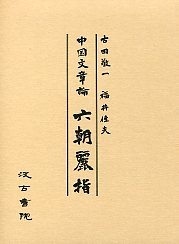 古田敬一 福井佳夫
中国文章論 六朝麗指
汲古書院